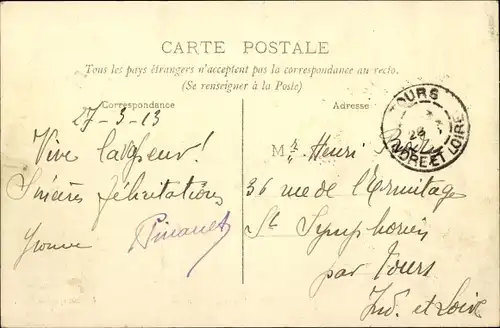 CARTE POSTALE
Tous les pays étrangers n'acceptent pas la correspondance au recto.
(Se renseigner à la Poste)
Correspondance
Adresse
27-3-13
Vive
Sincères félicitations
Yvonne
Pinault
TOURS
INDRE-ET-LOIRE
Mr Henri
36 rue de l'Ermitage
St Symphorien
par Tours
Ind. et Loire